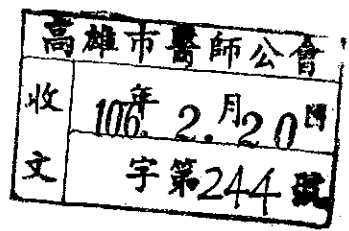 高雄市醫師公會
收文
106年2月20日
字第244號